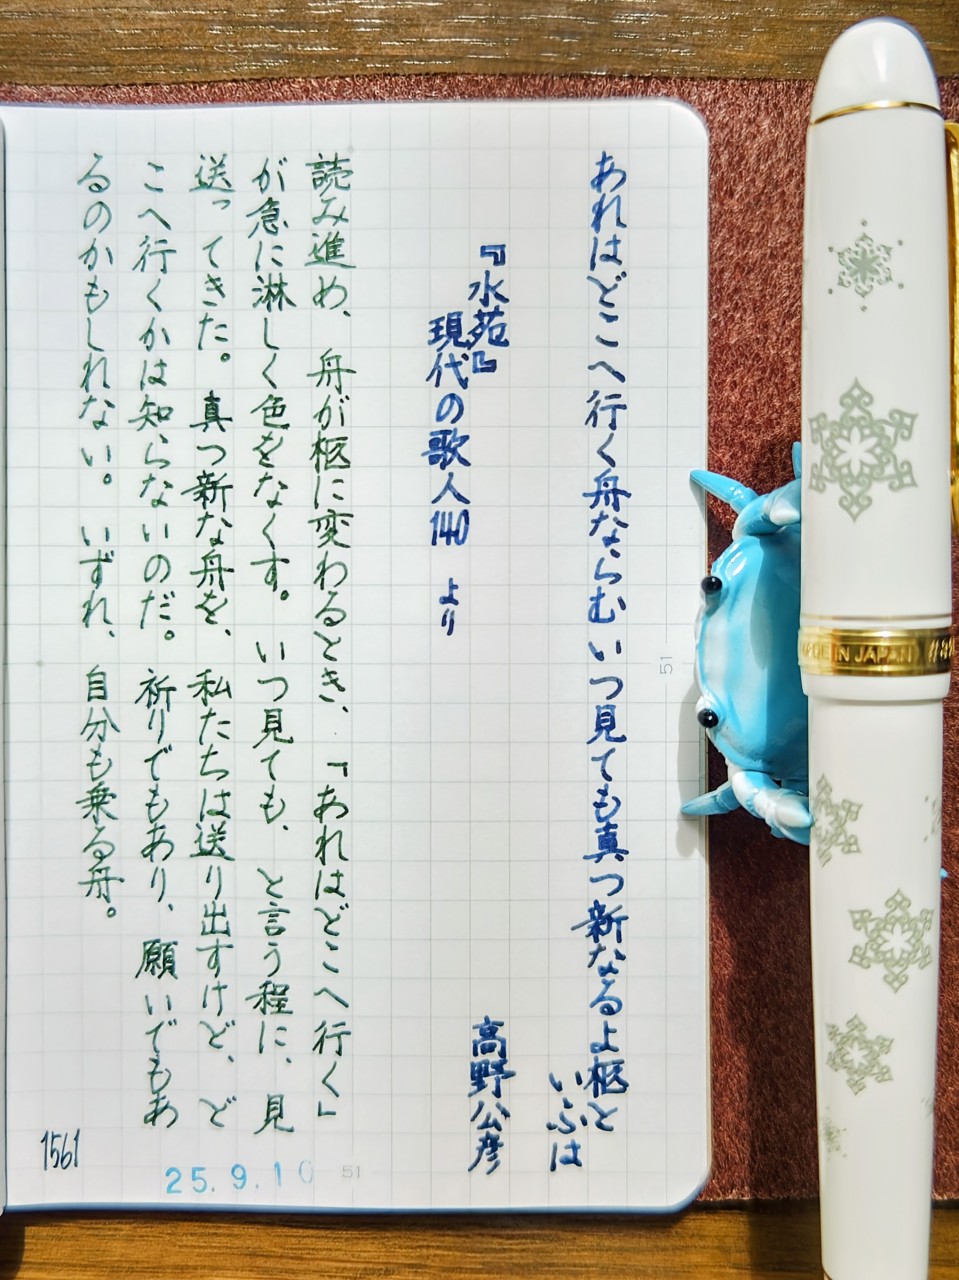 あれはどこへ行く舟ならむいつ見ても真つ新なるよ柩と
いふは
高野公彦
『水苑』
現代の歌人140 より
読み進め、舟が柩に変わるとき、「あれはどこへ行く」
が急に淋しく色をなくす。いつ見ても、と言う程に、見
送ってきた。真つ新な舟を、私たちは送り出すけど、ど
こへ行くかは知らないのだ。祈りでもあり、願いでもあ
るのかもしれない。いずれ、自分も乗る舟。
1561
25.9.10
51
51
MADE IN JAPAN